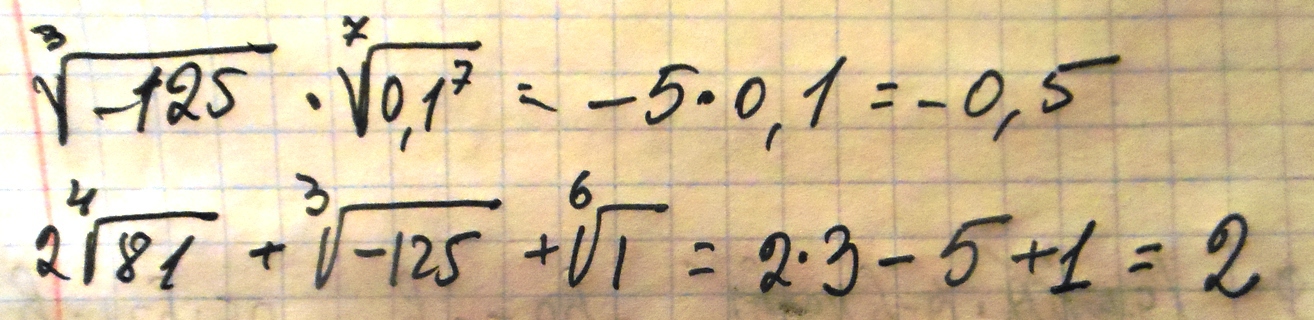 ∛-125 · ⁷√0,1⁷ = -5·0,1 = -0,5
2⁴√81 + ∛-125 + ⁶√1 = 2·3-5+1=2